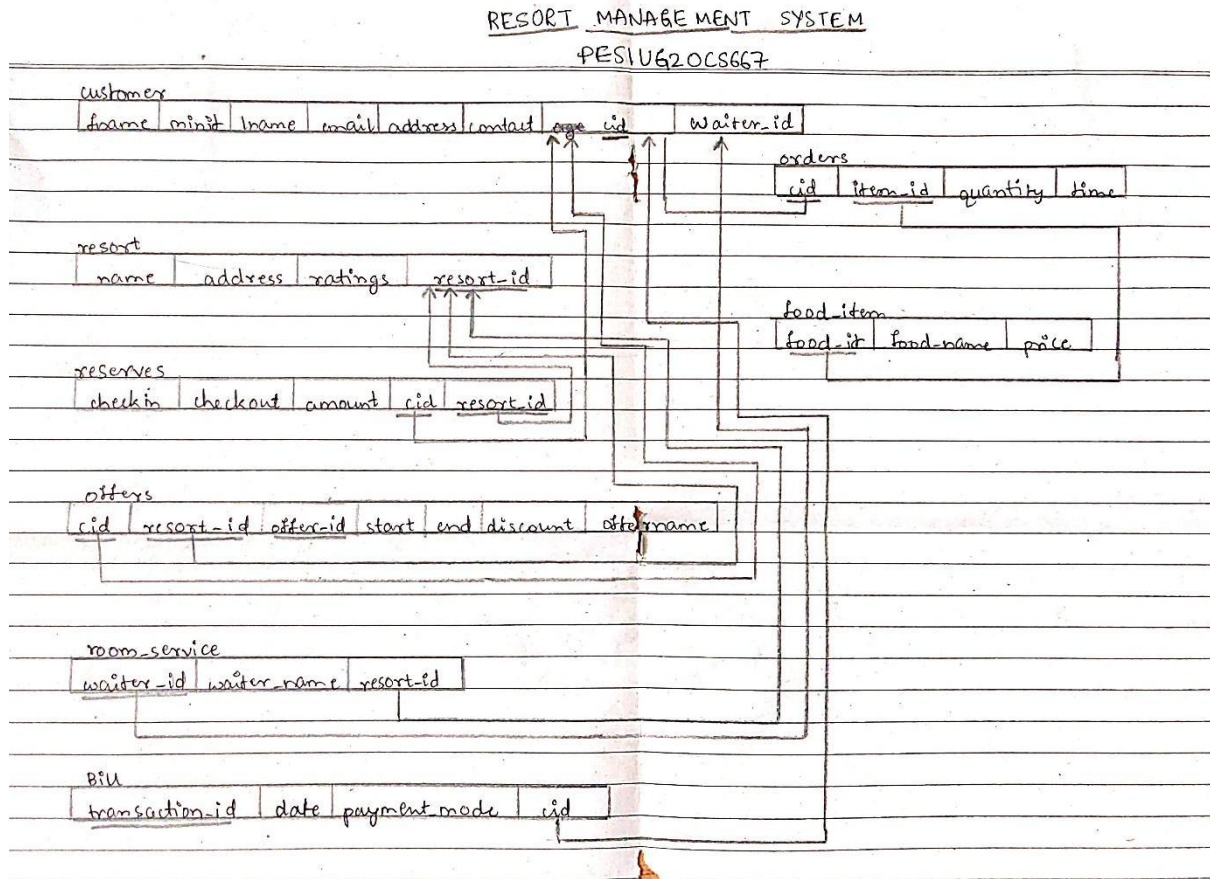 RESORT MANAGEMENT SYSTEM
PES1UG20CS667
customer
fname minit lname email address contact cid waiter_id
orders
cid item_id quantity time
resort
name address ratings resort_id
food_item
food_it food_name price
reserves
checkin checkout amount cid resort_id
offers
cid resort_id offer_id start end discount offer name
room_service
waiter_id waiter_name resort_id
Bill
transaction_id date payment_mode cid